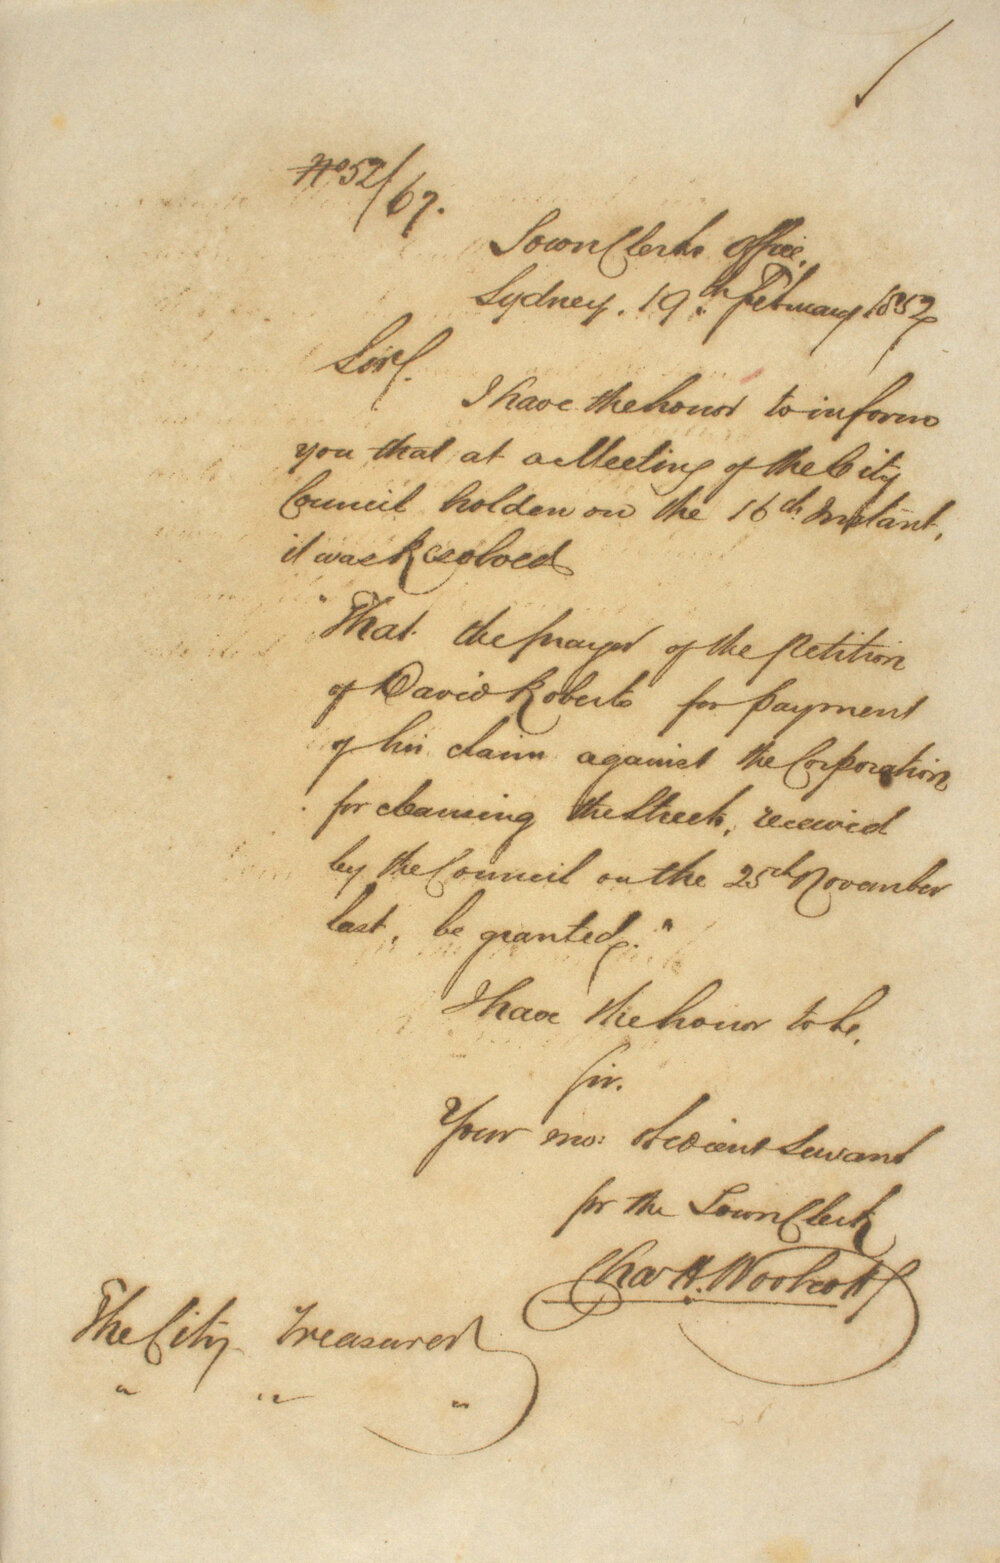 No 52/67.
Town Clerks Office,
Sydney, 19th February 1852
Sir,
I have the honor to inform
you that at a Meeting of the City
Council holden on the 16th Instant,
it was Resolved
"That the prayer of the Petition
of David Roberts for payment
of his claim against the Corporation
for cleansing the Streets, received
by the Council on the 25th November
last, be granted."
I have the honor to be,
Sir,
Your mo: obedient Servant
for the Town Clerk
Chas H. Woolcott
The City Treasurer
" " "